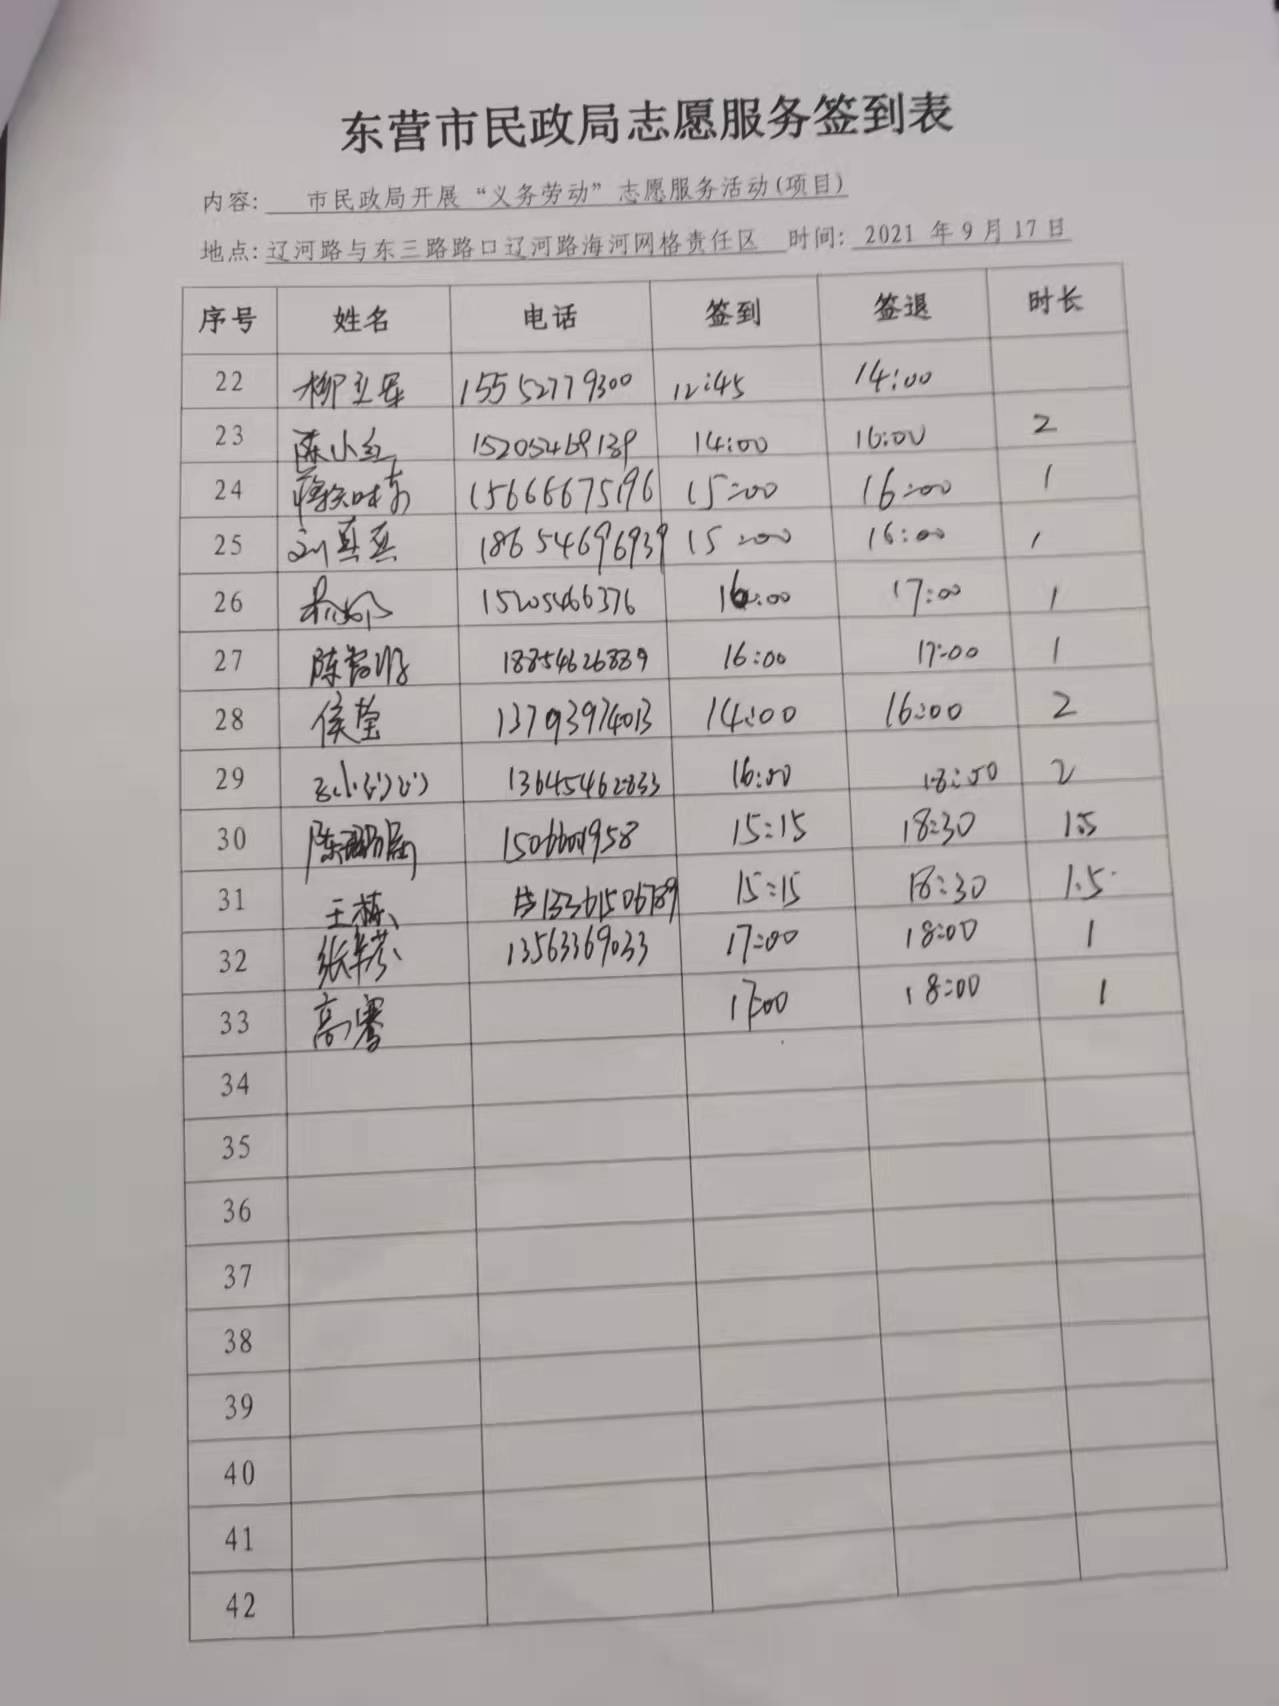 东营市民政局志愿服务签到表
内容: 市民政局开展“义务劳动”志愿服务活动(项目)
地点: 辽河路与东三路路口辽河路海河网格责任区 时间: 2021 年 9 月 17 日
序号 姓名 电话 签到 签退 时长
22 柳立军 15552779300 12:45 14:00
23 陈小红 15205469139 14:00 16:00 2
24 15666675196 15:00 16:00 1
25 刘真真 18654696939 15:00 16:00 1
26 15205466376 16:00 17:00 1
27 18854626889 16:00 17:00 1
28 侯莹 13793974013 14:00 16:00 2
29 13645462833 16:00 18:00 2
30 15:15 18:30 1.5
31 王栋 13361506789 15:15 18:30 1.5
32 13563369033 17:00 18:00 1
33 高骞 17:00 18:00 1
34
35
36
37
38
39
40
41
42